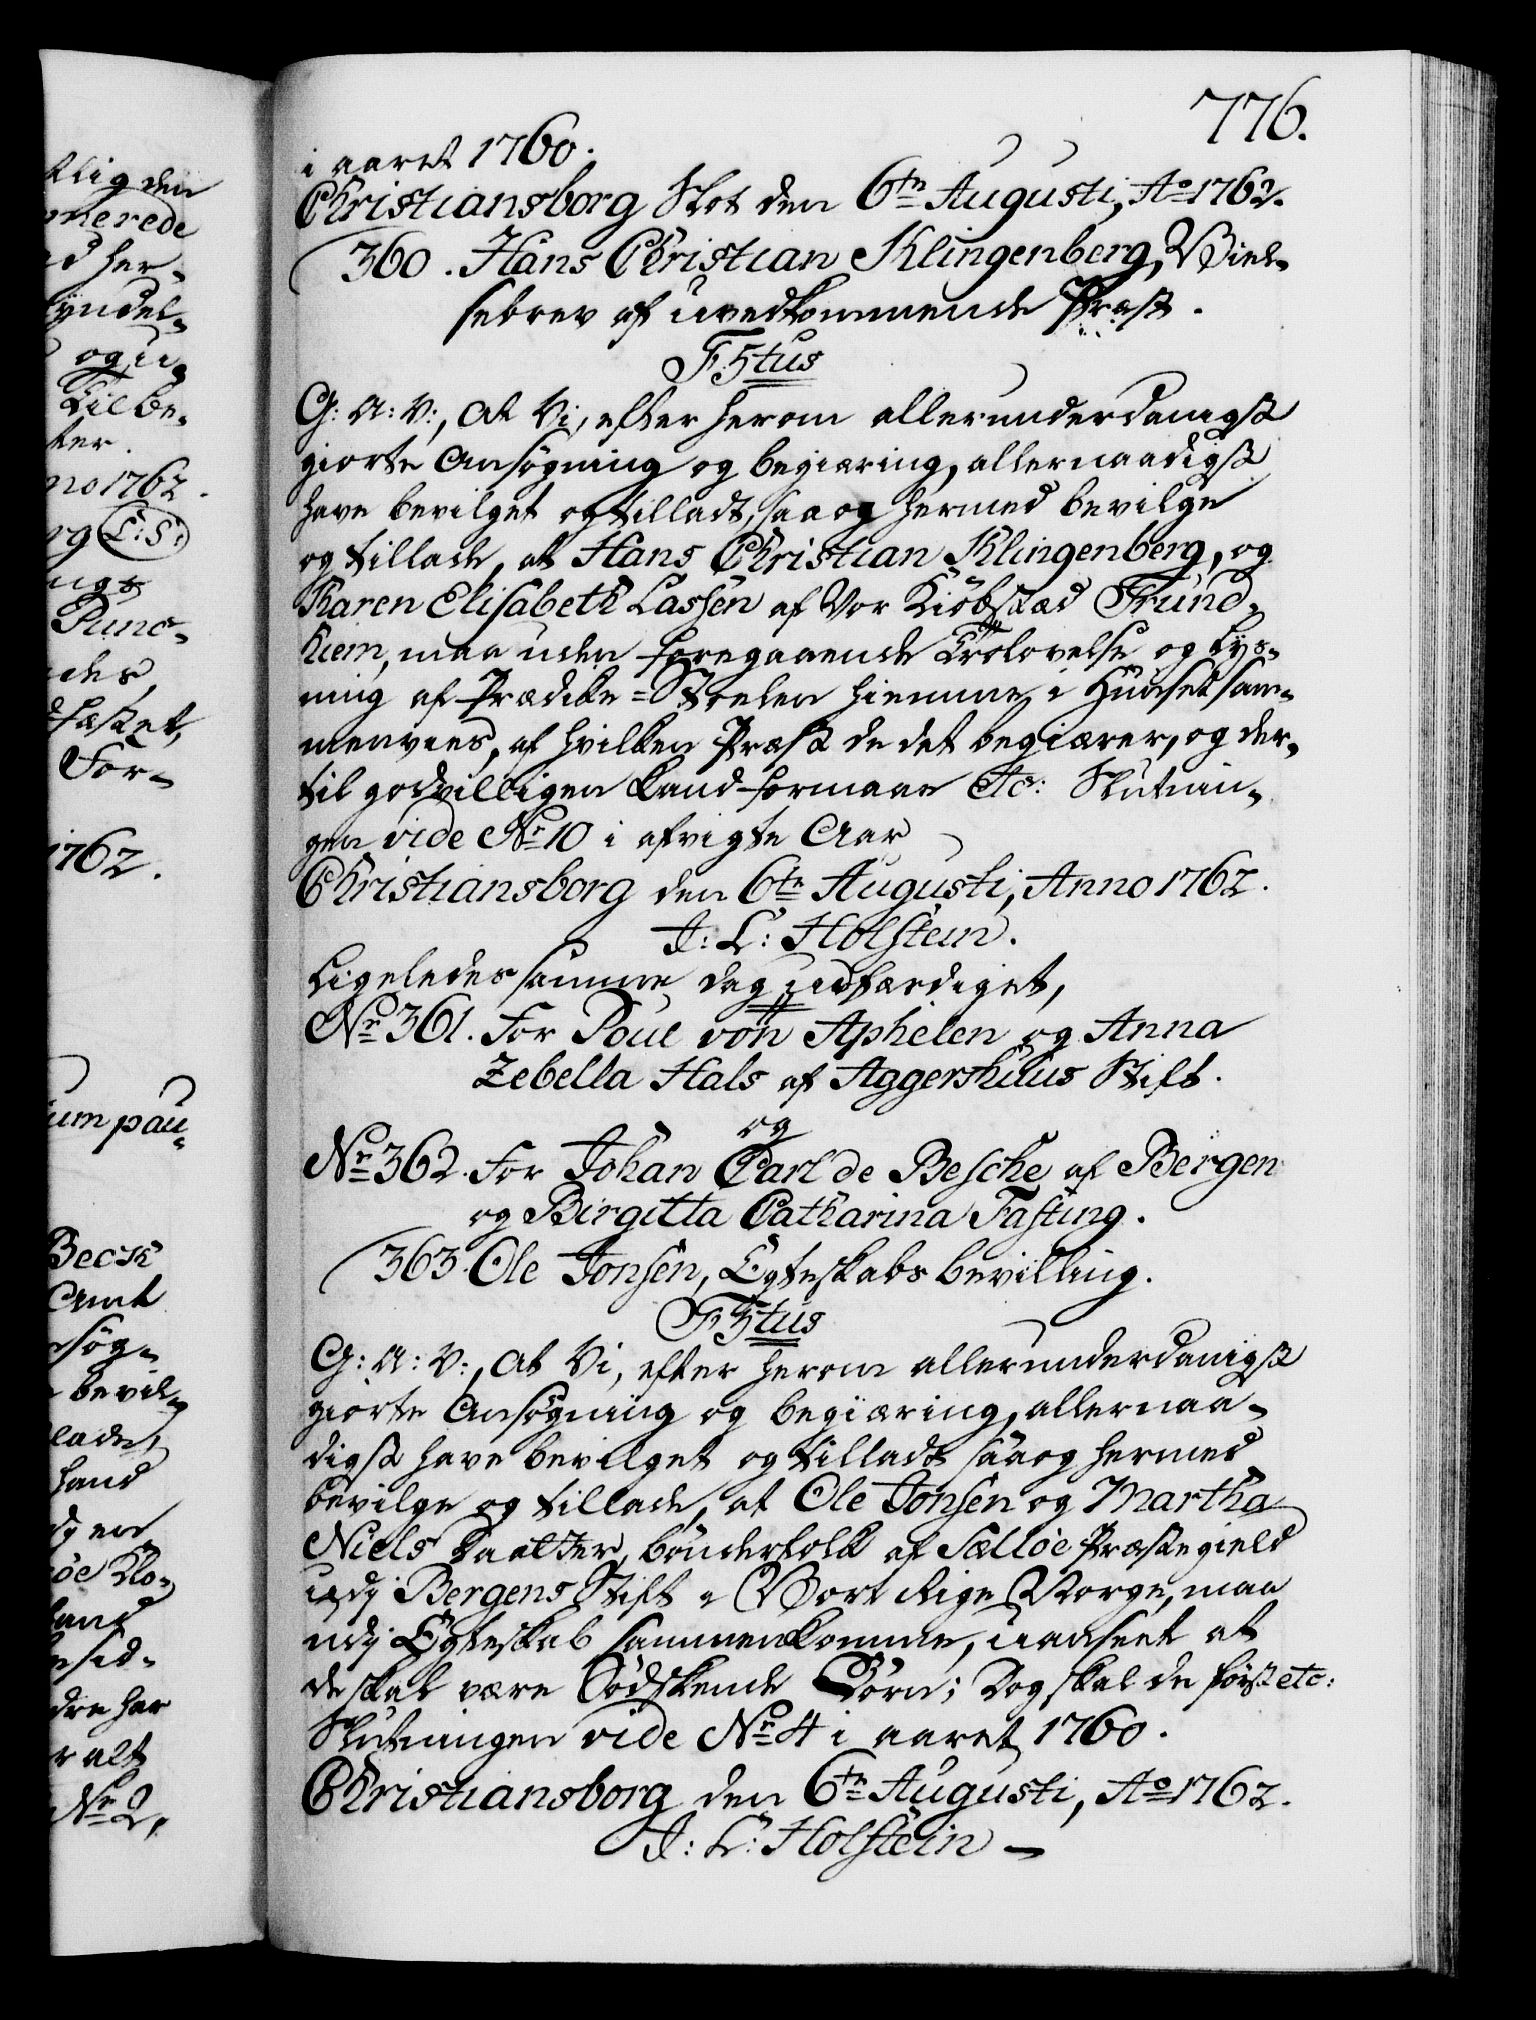 776.
i aaret 1760.
Christiansborg Slot den 6te Augusti, Ao 1762.
360. Hans Christian Klingenberg, Viel-
sebrev af uvedkommende Præst.
F5tus
G: A: V:, At Vi, efter herom allerunderdanigst
giorte Ansøgning og begiæring, allernaadigst
have bevilget og tilladt, saa og hermed bevilge
og tillade, at Hans Christian Klingenberg, og
Karen Elisabeth Lassen af Vor Kiøbstæd Trund-
hiem, maa uden foregaaende Trolovelse og Lys-
ning af Prædike-Stoelen hiemme i Huuset sam-
menvies, af hvilken Præst de det begiærer, og der-
til godvilligen kand formaae etc: Slutnin-
gen vide No 10 i afvigte Aar
Christiansborg den 6te Augusti, Anno 1762.
J: L: Holstein.
Ligeledes samme dag udfærdiget,
Nr 361. For Poul von Aphelen og Anna
Zebella Hals af Aggershuus Stift.
og
Nr 362. For Johan Carl de Besche af Bergen
og Birgitta Catharina Fasting.
363. Ole Jonsen, Egteskabs bevilling.
F5tus
G: A: V:, At Vi, efter herom allerunderdanigst
giorte Ansøgning og begiæring, allernaa-
digst have bevilget og tilladt saa og hermed
bevilge og tillade, at Ole Jonsen og Martha
Niels Daatter, bønderfolk afÆlløe Præstegield
udj Bergens Stift i Vort Rige Norge, maa
udj Egteskab sammenkomme, uanseet at
de skal være Sødskende Børn; Dog skal de først etc:
Slutningen vide Nr 4 i aaret 1760.
Christiansborg den 6te Augusti, Ao 1762.
J: L: Holstein
tlig den
merede
ed her-
og u-
Til be-
ter.
nno 1762.
rg L: S:
Punc-
des,
For-
1762.
um pau-
Beck
Amt
nsøg-
bevil-
lade,
hand
dre har
r alt
Nr 2,